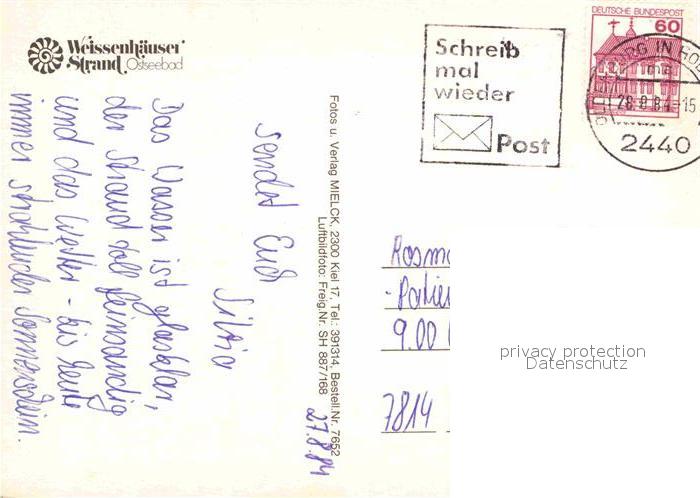 Weissenhäuser
Strand Ostseebad
Das Wasser ist glasklar,
der Strand toll feinsandig
und das Wetter - bis heute
immer strahlender Sonnenschein.
sendet Euch
Silvia
27.8.84
Fotos u. Verlag MIELCK, 2300 Kiel 17, Tel.: 391314, Bestell.Nr. 7652
Luftbildfoto: Freig.Nr. SH 887/168
Schreib
mal
wieder
Post
DEUTSCHE BUNDESPOST
60
28.8.84-15
2440
Rosm
9.00
7814
privacy protection
Datenschutz